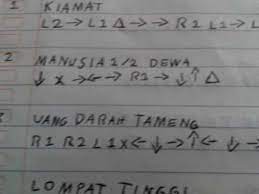 1 KIAMAT
L2 → L1 △ → → R2 L1 → L
2 MANUSIA 1/2 DEWA
↓ X → ← → R1 → ↓ ↑ △
3 UANG DARAH TAMENG
R1 R2 L1 X ← ↓ → ↑ ← ↓ →
LOMPAT TINGGI